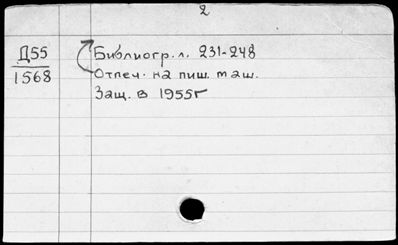 2
Д55
1568
Библиогр. л. 231-248
Отпеч. на пиш. маш.
Защ. в 1955г